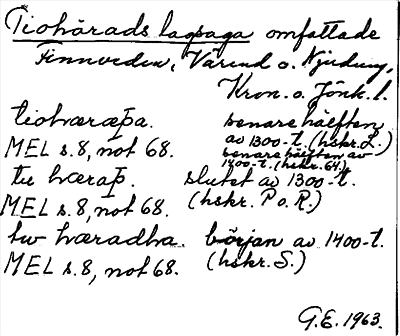 Tiohärads lagsaga omfattade
Finnveden, Värend o. Njudung,
Kron. o. Jönk. l.
tiohæræþa. senare hälften
av 1300-t. (hskr. L.)
MEL s. 8, not 68. senare hälften av
1400-t. (hskr. 64.)
tu hæraþ. slutet av 1300-t.
MEL s. 8, not 68. (hskr. P o. R.)
tw hæradha. början av 1400-t.
MEL s. 8, not 68. (hskr. S.)
G.E. 1963.